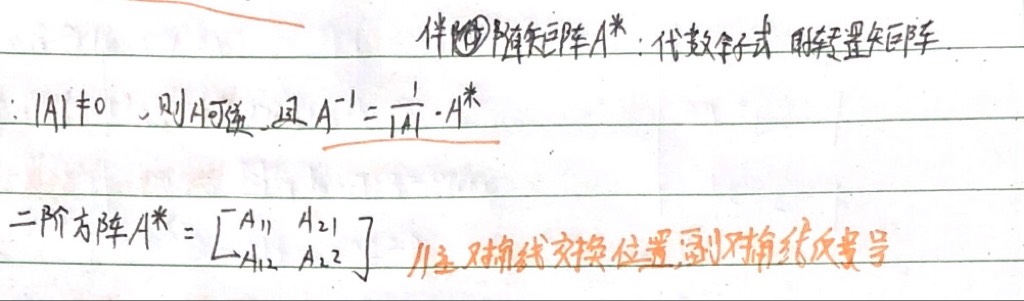 伴随阵矩阵A*：代数余子式的转置矩阵.
:|A|≠0，则A可逆，且A⁻¹=1/|A|·A*
二阶方阵A*=[A₁₁ A₂₁
A₁₂ A₂₂] //主对角线交换位置,副对角线反变号